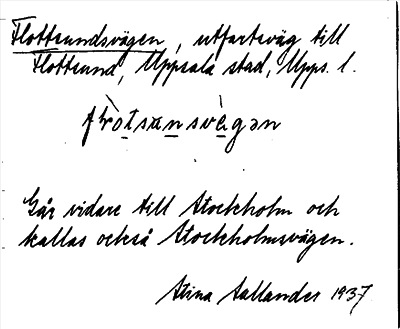 Flottsundsvägen, utfartsväg till
Flottsund, Uppsala stad, Upps. l.
flòtsansvègən
Går vidare till Stockholm och
kallas också Stockholmsvägen.
Stina Sallander 1937